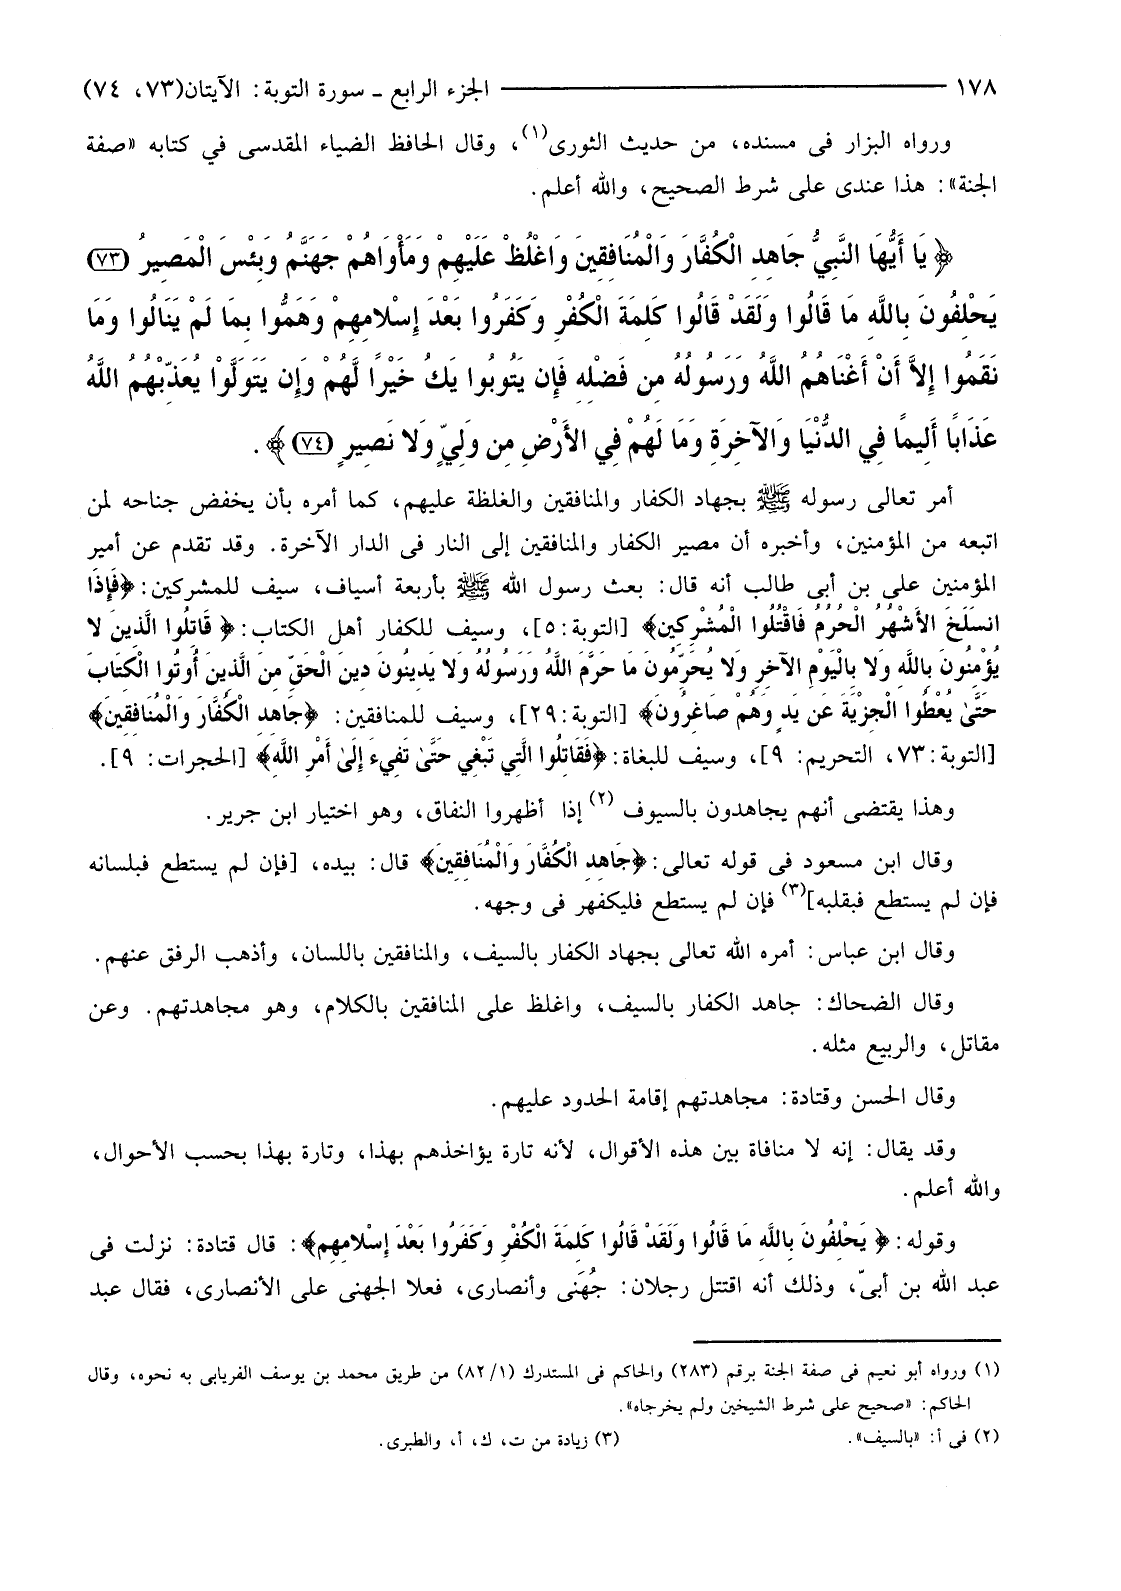 ١٧٨ الجزء الرابع ـ سورة التوبة: الآيتان(٧٣، ٧٤)
ورواه البزار فى مسنده، من حديث الثورى(١)، وقال الحافظ الضياء المقدسى في كتابه «صفة
الجنة»: هذا عندى على شرط الصحيح، والله أعلم.
﴿ يَا أَيُّهَا النَّبِيُّ جَاهِدِ الْكُفَّارَ وَالْمُنَافِقِينَ وَاغْلُظْ عَلَيْهِمْ وَمَأْوَاهُمْ جَهَنَّمُ وَبِئْسَ الْمَصِيرُ (٧٣)
يَحْلِفُونَ بِاللَّهِ مَا قَالُوا وَلَقَدْ قَالُوا كَلِمَةَ الْكُفْرِ وَكَفَرُوا بَعْدَ إِسْلامِهِمْ وَهَمُّوا بِمَا لَمْ يَنَالُوا وَمَا
نَقَمُوا إِلاَّ أَنْ أَغْنَاهُمُ اللَّهُ وَرَسُولُهُ مِن فَضْلِهِ فَإِن يَتُوبُوا يَكُ خَيْرًا لَّهُمْ وَإِن يَتَوَلَّوْا يُعَذِّبْهُمُ اللَّهُ
عَذَابًا أَلِيمًا فِي الدُّنْيَا وَالآخِرَةِ وَمَا لَهُمْ فِي الأَرْضِ مِن وَلِيٍّ وَلا نَصِيرٍ (٧٤)﴾ .
أمر تعالى رسوله ﷺ بجهاد الكفار والمنافقين والغلظة عليهم، كما أمره بأن يخفض جناحه لمن
اتبعه من المؤمنين، وأخبره أن مصير الكفار والمنافقين إلى النار فى الدار الآخرة. وقد تقدم عن أمير
المؤمنين على بن أبى طالب أنه قال: بعث رسول الله ﷺ بأربعة أسياف، سيف للمشركين: ﴿فَإِذَا
انسَلَخَ الأَشْهُرُ الْحُرُمُ فَاقْتُلُوا الْمُشْرِكِينَ﴾ [التوبة:٥]، وسيف للكفار أهل الكتاب: ﴿ قَاتِلُوا الَّذِينَ لا
يُؤْمِنُونَ بِاللَّهِ وَلا بِالْيَوْمِ الآخِرِ وَلا يُحَرِّمُونَ مَا حَرَّمَ اللَّهُ وَرَسُولُهُ وَلا يَدِينُونَ دِينَ الْحَقِّ مِنَ الَّذِينَ أُوتُوا الْكِتَابَ
حَتَّىٰ يُعْطُوا الْجِزْيَةَ عَن يَدٍ وَهُمْ صَاغِرُونَ﴾ [التوبة:٢٩]، وسيف للمنافقين: ﴿جَاهِدِ الْكُفَّارَ وَالْمُنَافِقِينَ﴾
[التوبة:٧٣، التحريم: ٩]، وسيف للبغاة: ﴿فَقَاتِلُوا الَّتِي تَبْغِي حَتَّىٰ تَفِيءَ إِلَىٰ أَمْرِ اللَّهِ﴾ [الحجرات: ٩].
وهذا يقتضى أنهم يجاهدون بالسيوف (٢) إذا أظهروا النفاق، وهو اختيار ابن جرير.
وقال ابن مسعود فى قوله تعالى: ﴿جَاهِدِ الْكُفَّارَ وَالْمُنَافِقِينَ﴾ قال: بيده، [فإن لم يستطع فبلسانه
فإن لم يستطع فبقلبه](٣) فإن لم يستطع فليكفهر فى وجهه.
وقال ابن عباس: أمره الله تعالى بجهاد الكفار بالسيف، والمنافقين باللسان، وأذهب الرفق عنهم.
وقال الضحاك: جاهد الكفار بالسيف، واغلظ على المنافقين بالكلام، وهو مجاهدتهم. وعن
مقاتل، والربيع مثله.
وقال الحسن وقتادة: مجاهدتهم إقامة الحدود عليهم.
وقد يقال: إنه لا منافاة بين هذه الأقوال، لأنه تارة يؤاخذهم بهذا، وتارة بهذا بحسب الأحوال،
والله أعلم.
وقوله: ﴿ يَحْلِفُونَ بِاللَّهِ مَا قَالُوا وَلَقَدْ قَالُوا كَلِمَةَ الْكُفْرِ وَكَفَرُوا بَعْدَ إِسْلامِهِم﴾: قال قتادة: نزلت فى
عبد الله بن أبىّ، وذلك أنه اقتتل رجلان: جُهَنى وأنصارى، فعلا الجهنى على الأنصارى، فقال عبد
(١) ورواه أبو نعيم فى صفة الجنة برقم (٢٨٣) والحاكم فى المستدرك (١/ ٨٢) من طريق محمد بن يوسف الفريابى به نحوه، وقال
الحاكم: «صحيح على شرط الشيخين ولم يخرجاه».
(٢) فى أ: «بالسيف». (٣) زيادة من ت، ك، أ، والطبرى.